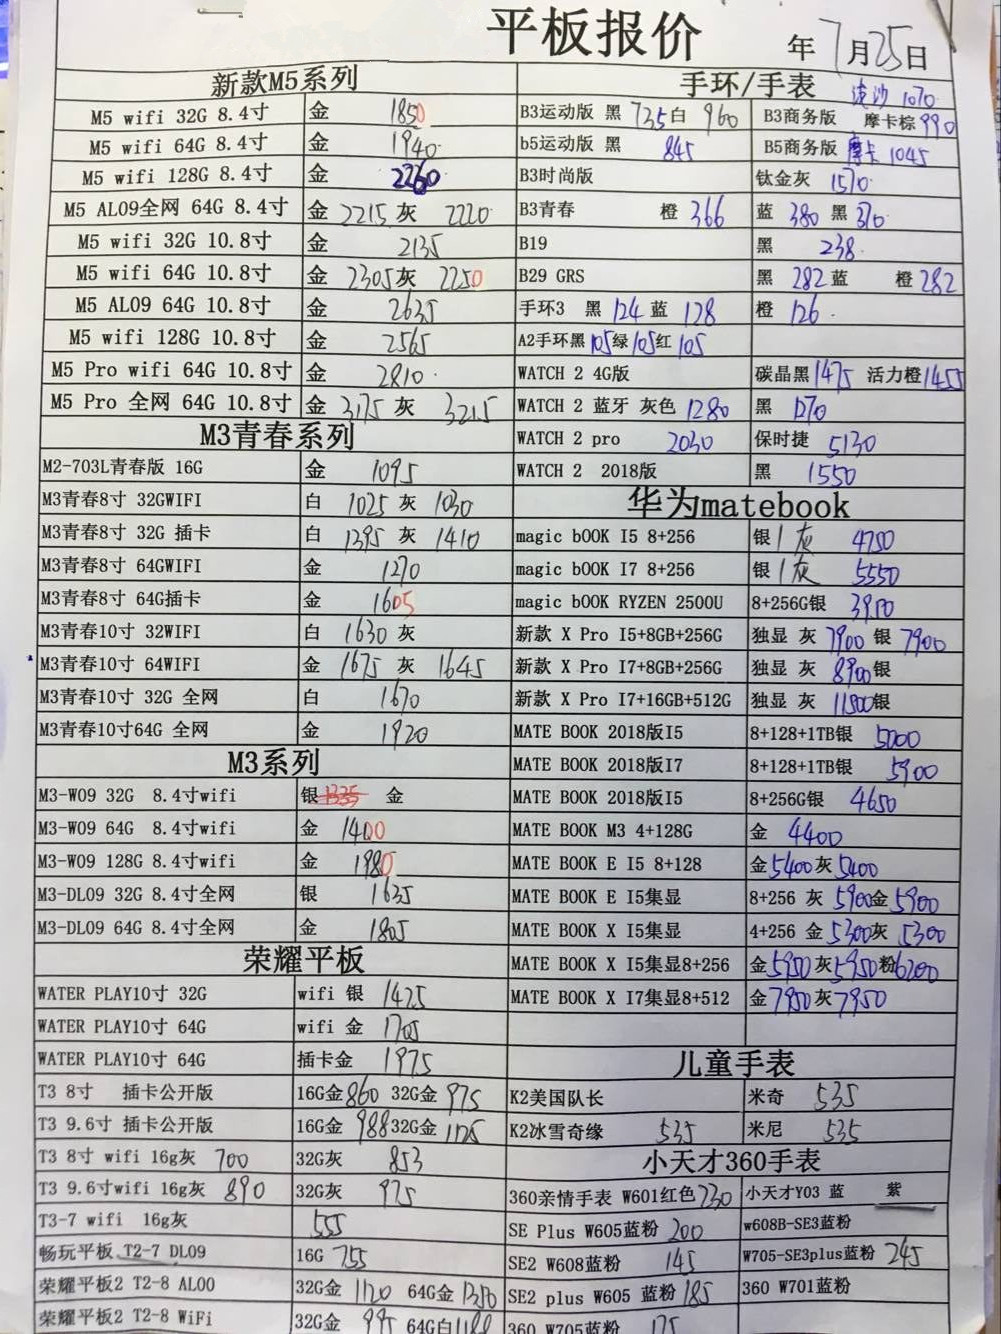 平板报价
年 7月25日
新款M5系列
M5 wifi 32G 8.4寸 金 1850
M5 wifi 64G 8.4寸 金 1940
M5 wifi 128G 8.4寸 金 2260
M5 AL09全网 64G 8.4寸 金 2215 灰 2220
M5 wifi 32G 10.8寸 金 2135
M5 wifi 64G 10.8寸 金 2305 灰 2250
M5 AL09 64G 10.8寸 金 2635
M5 wifi 128G 10.8寸 金 2565
M5 Pro wifi 64G 10.8寸 金 2810
M5 Pro 全网 64G 10.8寸 金 3175 灰 3215
M3青春系列
M2-703L青春版 16G 金 1095
M3青春8寸 32GWIFI 白 1025 灰 1030
M3青春8寸 32G 插卡 白 1395 灰 1410
M3青春8寸 64GWIFI 金 1270
M3青春8寸 64G插卡 金 1605
M3青春10寸 32WIFI 白 1630 灰
M3青春10寸 64WIFI 金 1675 灰 1645
M3青春10寸 32G 全网 白 1670
M3青春10寸64G 全网 金 1920
M3系列
M3-W09 32G 8.4寸wifi 银 1335 金
M3-W09 64G 8.4寸wifi 金 1400
M3-W09 128G 8.4寸wifi 金 1980
M3-DL09 32G 8.4寸全网 银 1635
M3-DL09 64G 8.4寸全网 金 1805
荣耀平板
WATER PLAY10寸 32G wifi 银 1425
WATER PLAY10寸 64G wifi 金 1705
WATER PLAY10寸 64G 插卡金 1975
T3 8寸 插卡公开版 16G金 860 32G金 975
T3 9.6寸 插卡公开版 16G金 988 32G金 1125
T3 8寸 wifi 16g灰 700 32G灰 853
T3 9.6寸wifi 16g灰 890 32G灰 975
T3-7 wifi 16g灰 555
畅玩平板 T2-7 DL09 16G 755
荣耀平板2 T2-8 AL00 32G金 1120 64G金 1350
荣耀平板2 T2-8 WiFi 32G金 995 64G白
手环/手表
流沙 1070
B3运动版 黑 735 白 960 B3商务版 摩卡棕 990
b5运动版 黑 845 B5商务版 摩卡 1045
B3时尚版 钛金灰 1570
B3青春 橙 366 蓝 380 黑 370
B19 黑 238
B29 GRS 黑 282 蓝 橙 282
手环3 黑 124 蓝 128 橙 126
A2手环黑 105 绿 105 红 105
WATCH 2 4G版 碳晶黑 1475 活力橙 1455
WATCH 2 蓝牙 灰色 1280 黑 1270
WATCH 2 pro 2030 保时捷 5130
WATCH 2 2018版 黑 1550
华为matebook
magic bOOK I5 8+256 银 / 灰 4750
magic bOOK I7 8+256 银 / 灰 5550
magic bOOK RYZEN 2500U 8+256G银 3950
新款 X Pro I5+8GB+256G 独显 灰 7900 银 7900
新款 X Pro I7+8GB+256G 独显 灰 8900 银
新款 X Pro I7+16GB+512G 独显 灰 11800 银
MATE BOOK 2018版I5 8+128+1TB银 5000
MATE BOOK 2018版I7 8+128+1TB银 5900
MATE BOOK 2018版I5 8+256G银 4650
MATE BOOK M3 4+128G 金 4400
MATE BOOK E I5 8+128 金 5400 灰 5400
MATE BOOK E I5集显 8+256 灰 5900 金 5900
MATE BOOK X I5集显 4+256 金 5300 灰 5300
MATE BOOK X I5集显8+256 金 5950 灰 5950 粉 6200
MATE BOOK X I7集显8+512 金 7950 灰 7950
儿童手表
K2美国队长 米奇 535
K2冰雪奇缘 535 米尼 535
小天才360手表
360亲情手表 W601红色 230 小天才Y03 蓝 紫
SE Plus W605蓝粉 200 w608B-SE3蓝粉
SE2 W608蓝粉 145 W705-SE3plus蓝粉 245
SE2 plus W605 蓝粉 185 360 W701蓝粉
360 W705蓝粉 175